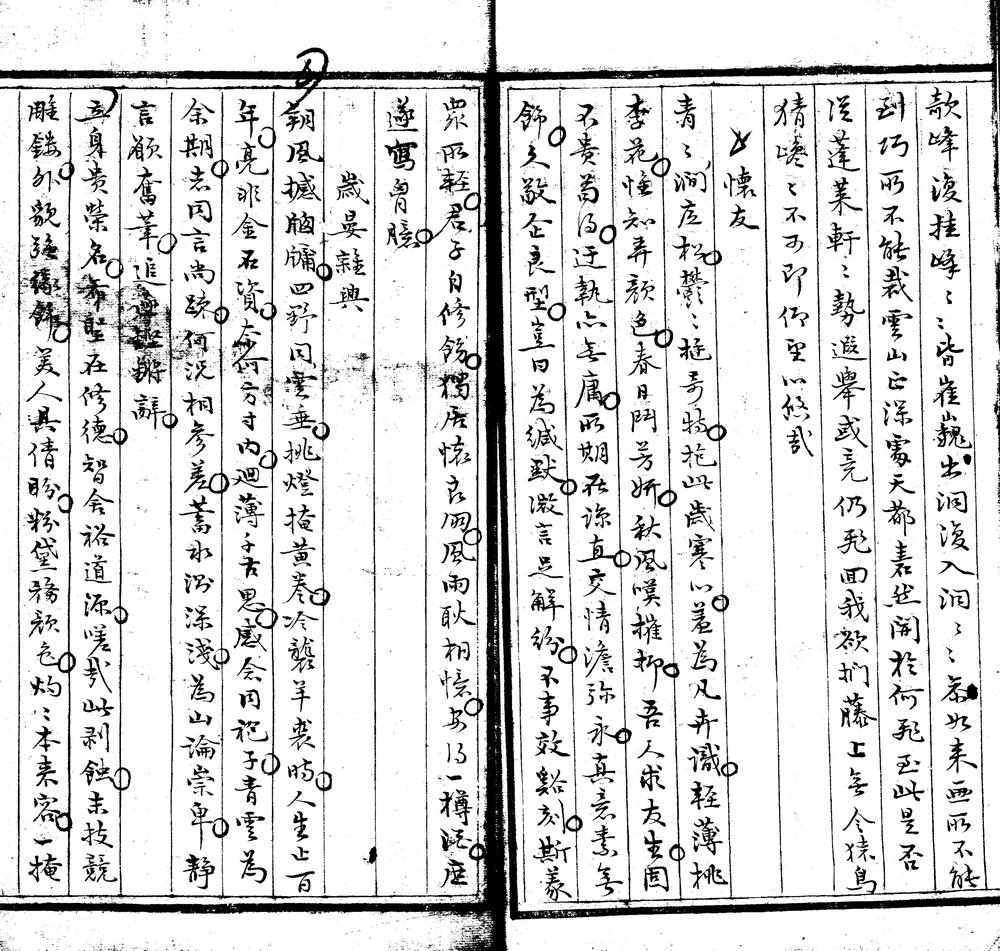 欹峰復挂峰〻〻皆崔巍出洞復入洞〻〻恭如來画所不能
到巧所不能裁雲山正深處天都
砉然開於何飛至此是否
從蓬萊軒〻勢遐舉或竟仍飛回我欲捫藤上無令猿鳥
猜巉〻不可即仰望心悠哉
懷友
青〻澗底松鬱〻挺奇特抱此歲寒心羞為凡卉識輕薄桃
李花惟知弄顏色春日鬥芳妍秋風嘆摧抑吾人求友生固
不貴苟得迂執亦無庸所期在諒直交情澹彌永真意素無
飾久敬企良型豈曰為緘默激言足解紛不事效谿刻斯義
眾所輕君子自修飭獨居懷良朋風雨耿相憶安得一樽酒庶
遂寫胸臆
歲晏雜興
朔風撼牖四野同雲垂挑燈掩黃卷冷襲羊裘時人生上百
年亮非金石資奈何方寸內迴薄千古思感念同袍子青雲為
余期志同言尚疏何況相參差蓄水測深淺為山論崇卑靜
言願奮葦追辭
立身貴榮名希聖在修德智舍裕道源嗟哉此剥蝕末技競
雕鏤外貌強緣飾美人具倩盼粉黛務顏色灼〻本來容一掩